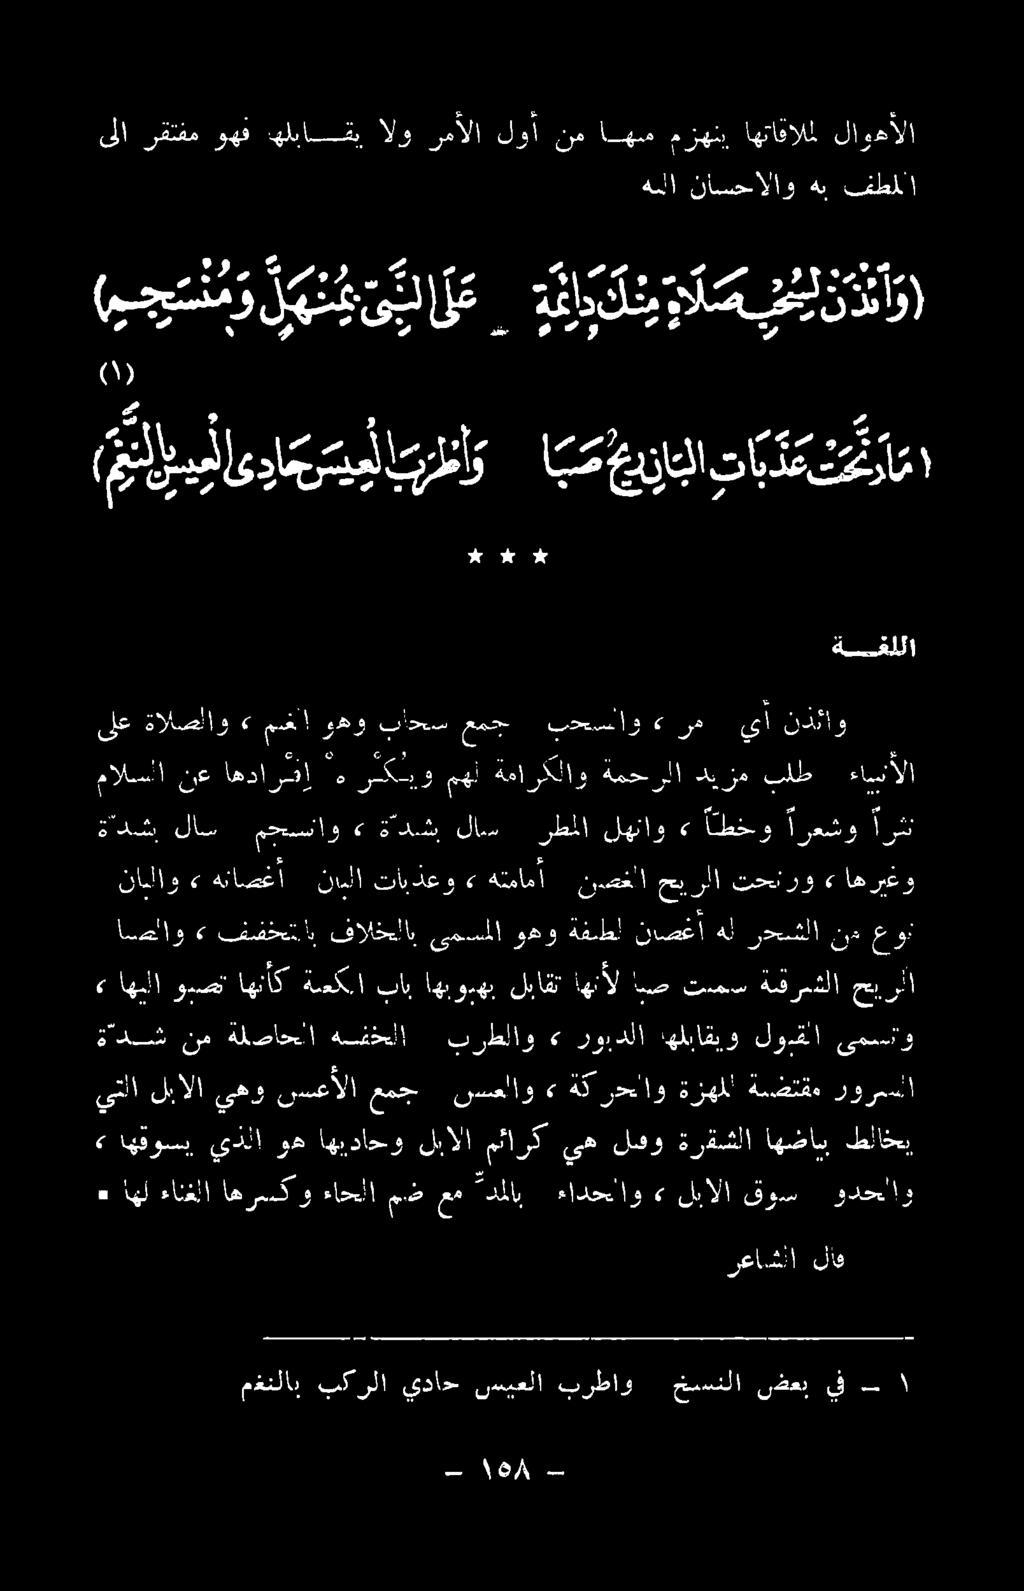 الأهوال لملاقاتها ينهزم منها من أول الأمر ولا يقابلها فهو مفتقر الى
اللطف به والاحسان اليه
(وَائْذَنْ لِسُحْبِ صَلَاةٍ مِنْكَ دَائِمَةٍ عَلَى النَّبِيِّ بِمُنْهَلٍّ وَمُنْسَجِمِ)
(١)
(مَا رَنَّحَتْ عَذَبَاتِ الْبَانِ رِيحُ صَبَا وَأَطْرَبَ الْعِيسَ حَادِي الْعِيسِ بِالنَّغَمِ)
* * *
اللغة
وائذن أي مر ، والسحب جمع سحاب وهو الغيم ، والصلاة على
الأنبياء طلب مزيد الرحمة والكرامة لهم ويُكْرَه إِفْرادها عن السلام
نثراً وشعراً وخطاً ، وانهل المطر سال بشدّة ، وانسجم سال بشدّة
وغيرها ، ورنحت الريح الغصن أمامته ، وعذبات البان أغصانه ، والبان
نوع من الشجر له أغصان لطيفة وهو المسمى بالخلاف بالتخفيف ، والصبا
الريح الشرقية سميت صبا لأنها تقابل بهبوبها باب الكعبة كأنها تصبو اليها ،
وتسمى القبول ويقابلها الدبور ، والطرب الخفة الحاصلة من شدّة
السرور مقتضية للهزة والحركة ، والعيس جمع الأعيس وهي الابل التي
يخالط بياضها الشقرة وقيل هي كرائم الابل وحاديها هو الذي يسوقها ،
والحدو سوق الابل ، والحداء بالمدّ مع ضم الحاء وكسرها الغناء لها .
قال الشاعر
١ – في بعض النسخ واطرب العيس حادي الركب بالنغم
– ١٥٨ –